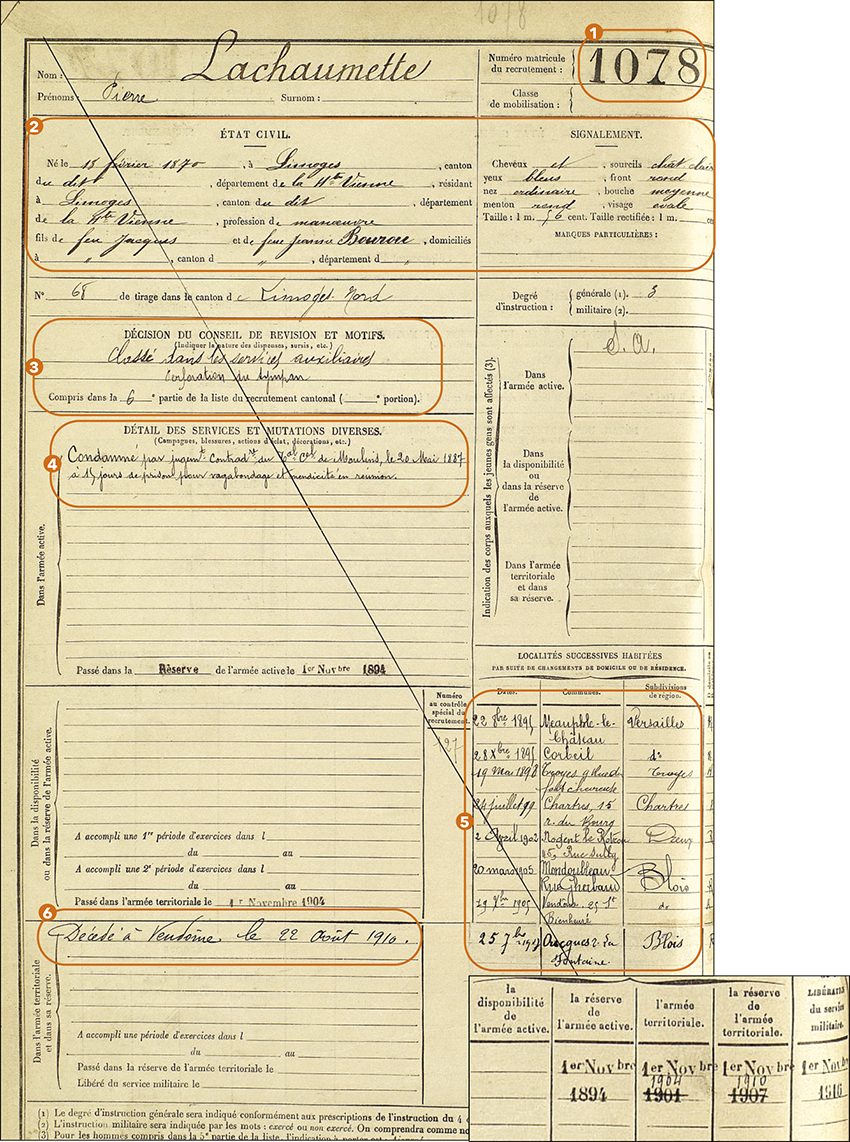 1078
Nom : Lachaumette
Prénoms : Pierre Surnom :
Numéro matricule du recrutement : 1078
Classe de mobilisation :
1
2
ÉTAT CIVIL.
Né le 15 février 1870, à Limoges, canton
du dit, département de la Hte Vienne, résidant
à Limoges, canton du dit, département
de la Hte Vienne, profession de manœuvre
fils de feu Jacques et de feue Jeanne Bourou, domiciliés
à " , canton d " , département d "
SIGNALEMENT.
Cheveux et, sourcils chât clair
yeux bleus, front rond
nez ordinaire, bouche moyenne
menton rond, visage ovale
Taille : 1 m. 56 cent. Taille rectifiée : 1 m. ce
MARQUES PARTICULIÈRES :
N° 68 de tirage dans le canton de Limoges Nord
Degré d'instruction : générale (1). 3
militaire (2).
3
DÉCISION DU CONSEIL DE REVISION ET MOTIFS.
(Indiquer la nature des dispenses, sursis, etc.)
Classé dans les services auxiliaires
Perforation du tympan
Compris dans la 6e partie de la liste du recrutement cantonal ( e portion).
4
DÉTAIL DES SERVICES ET MUTATIONS DIVERSES.
(Campagnes, blessures, actions d'éclat, décorations, etc.)
Condamné par jugent contradre du Tal Cel de Moulins, le 20 Mai 1887
à 15 jours de prison pour vagabondage et mendicité en réunion.
Dans l'armée active.
Passé dans la Réserve de l'armée active le 1er Novbre 1894
Indication des corps auxquels les jeunes gens sont affectés (3).
Dans l'armée active.
S.A.
Dans la disponibilité ou dans la réserve de l'armée active.
Dans l'armée territoriale et dans sa réserve.
Numéro au contrôle spécial du recrutement
127
Dans la disponibilité ou dans la réserve de l'armée active.
A accompli une 1re période d'exercices dans l
du au
A accompli une 2e période d'exercices dans l
du au
Passé dans l'armée territoriale le 1er Novembre 1904
LOCALITÉS SUCCESSIVES HABITÉES
PAR SUITE DE CHANGEMENTS DE DOMICILE OU DE RÉSIDENCE.
Dates. Communes. Subdivisions de région.
5
22 8bre 1895 Neauphle-le-Château Versailles
28 Xbre 1895 Corbeil do
19 Mai 1898 Troyes 9 Rue du Troyes
24 juillet 99 Chartres, 15 r. du Bourg Chartres
2 Avril 1903 Nogent le Rotrou 45, Rue Sully Dreux
20 mars 1905 Mondoubleau Blois
1905 Vendôme, 25 do
25 7bre Oucques r. la Fontaine. Blois
6
Décédé à Vendôme le 22 Août 1910.
Dans l'armée territoriale et dans sa réserve.
A accompli une période d'exercices dans l
du au
Passé dans la réserve de l'armée territoriale le
Libéré du service militaire le
la disponibilité de l'armée active.
la réserve de l'armée active.
l'armée territoriale.
la réserve de l'armée territoriale.
LIBÉRATION du service militaire.
1er Novbre 1894
1er Novbre 1904 1901
1er Novbre 1910 1907
1er Nov 1916
(1) Le degré d'instruction générale sera indiqué conformément aux prescriptions de l'instruction du 4
(2) L'instruction militaire sera indiquée par les mots : exercé ou non exercé. On comprendra comme no
(3) Pour les hommes compris dans la 5e partie de la liste, l'indication à porter est